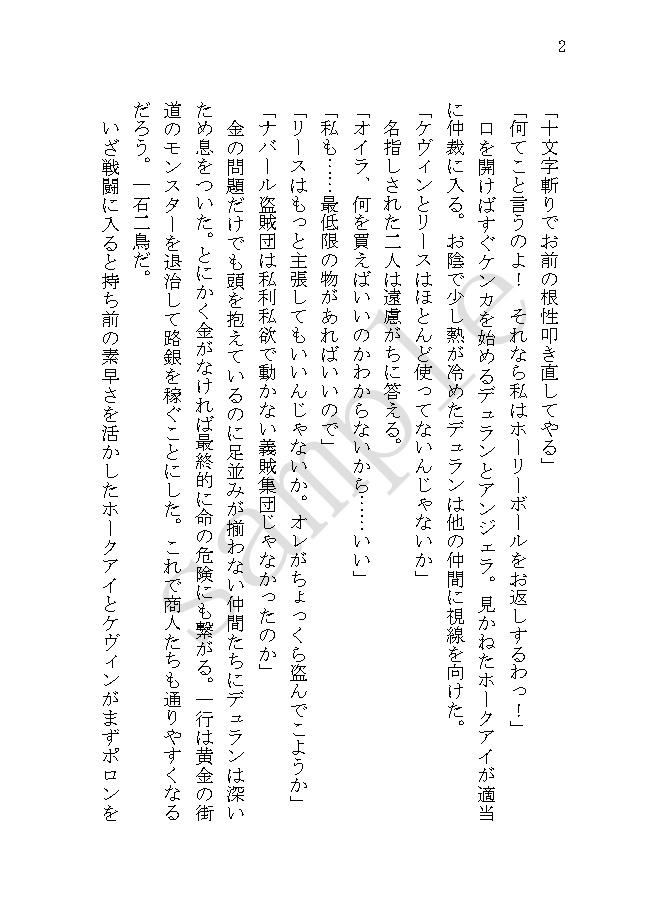 2
「十文字斬りでお前の根性叩き直してやる」
「何てこと言うのよ！　それなら私はホーリーボールをお返しするわっ！」
　口を開けばすぐケンカを始めるデュランとアンジェラ。見かねたホークアイが適当
に仲裁に入る。お陰で少し熱が冷めたデュランは他の仲間に視線を向けた。
「ケヴィンとリースはほとんど使ってないんじゃないか」
　名指しされた二人は遠慮がちに答える。
「オイラ、何を買えばいいのかわからないから……いい」
「私も……最低限の物があればいいので」
「リースはもっと主張してもいいんじゃないか。オレがちょっくら盗んでこようか」
「ナバール盗賊団は私利私欲で動かない義賊集団じゃなかったのか」
　金の問題だけでも頭を抱えているのに足並みが揃わない仲間たちにデュランは深い
ため息をついた。とにかく金がなければ最終的に命の危険にも繋がる。一行は黄金の街
道のモンスターを退治して路銀を稼ぐことにした。これで商人たちも通りやすくなる
だろう。一石二鳥だ。
　いざ戦闘に入ると持ち前の素早さを活かしたホークアイとケヴィンがまずポロンを
sample